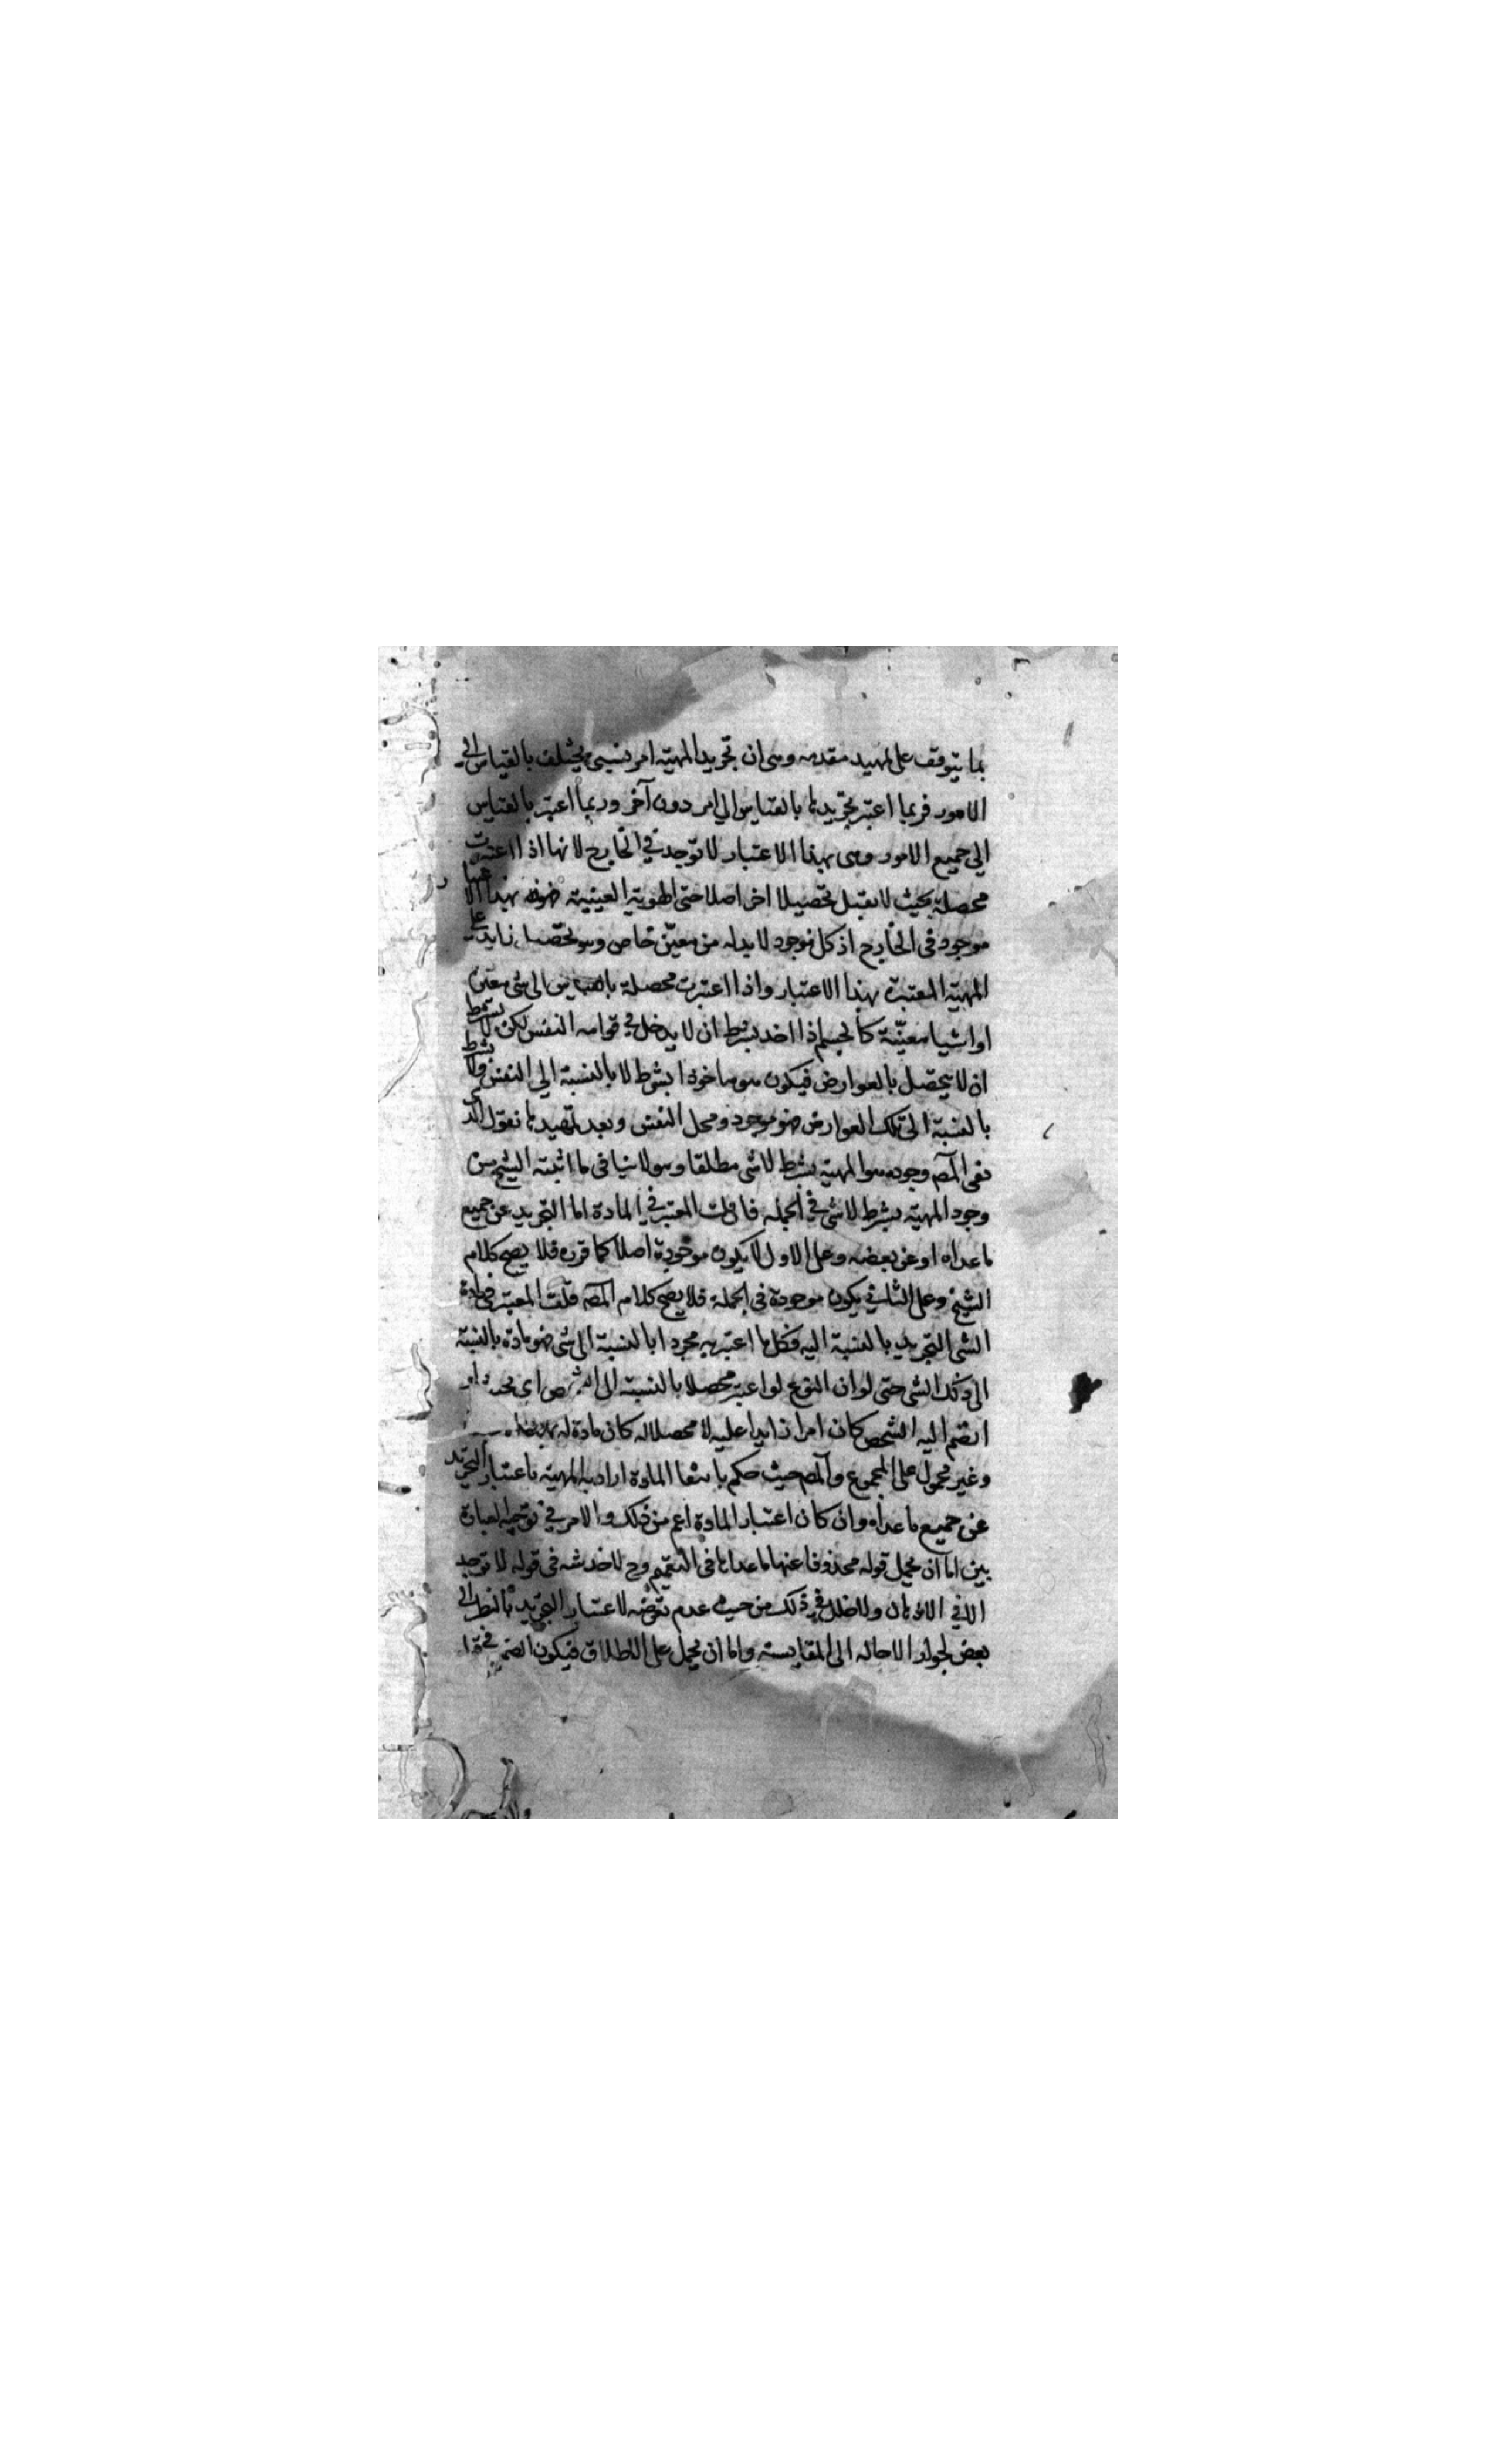 بما يتوقف على تمهيد مقدمه وهى ان تجريد المهيّة امر نسبي يختلف بالقياس الى
الامور فربما اعتبر تجريدها بالقياس الي امر دون آخر وربما اعتبر بالقياس
الي جميع الامور وهى بهذا الاعتبار لا توجد في الخارج لانها اذا اعتبرت
محصلة بحيث لا يقبل تحصيلا اخر اصلا حتى الهوية العينية فهذه بهذا
موجود فى الخارج اذ كل موجود لا بد له من معيّن خاص وهو تحصيل زايد على
المهيّة المعتبرة بهذا الاعتبار واذا اعتبرت محصلة بالقياس الى شئ معين
او اشيا معيّنة كالجسم اذا اخذ بشرط ان لا يدخل في قوامه النفس لكن لا بشرط
ان لا يتحصل بالعوارض فيكون هو ماخوذا بشرط لا بالنسبة الي النفس ولا بشرط
بالنسبة الى تلك العوارض فهو موجود ومحل النفس وبعد تمهيدها نقول الذى
نفى المصـ وجوده هو المهية بشرط لا شى مطلقا وهو لا ينافى ما اثبته الشيخ من
وجود المهيّة بشرط لا شئ في الجملة فان قلت المعتبر في المادة اما التجريد عن جميع
ما عداه او عن بعضه وعلى الاول لا يكون موجودة اصلا كما قرره فلا يصح كلام
الشيخ وعلى الثاني يكون موجودة فى الجملة فلا يصح كلام المصـ قلت المعتبر فى مادة
الشى التجريد بالنسبة اليه فكل ما اعتبر به مجردا بالنسبة الى شى فهو مادة بالنسبة
الى ذلك الشى حتى لو ان النوع لو اعتبر محصلا بالنسبة الى الشخص اى بحد لو
انضم اليه الشخص كان امرا زايدا عليه لا محصلا له كان مادة له
وغير محمول على المجموع والمصـ حيث حكم بانتفا المادة اراد به المهيّة باعتبار التجريد
عن جميع ما عداه وان كان اعتبار المادة اعم من ذلك والامر في توجيه العبارة
بين اما ان يحمل قوله محذوفا عنها ما عداها فى التعميم وح لا خدشه فى قوله لا توجد
الا في الاذهان ولا خلل في ذلك من حيث عدم تعرضه لاعتبار التجريد بالنظر الى
بعض لجواز الاحاله الى المقايسة واما ان يحمل على الاطلاق فيكون